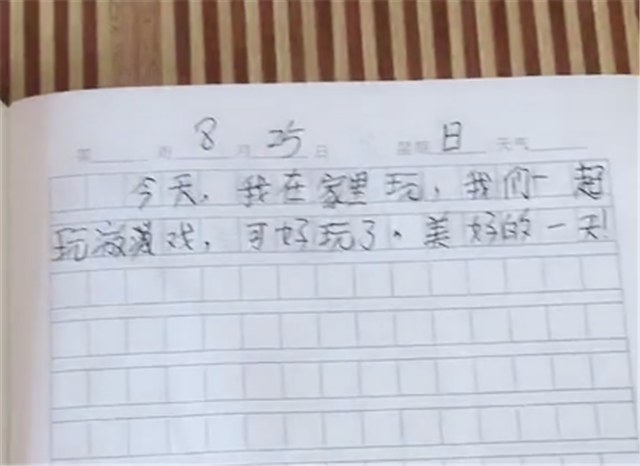 8月25日 星期日 天气
今天,我在家里玩,我们一起
玩游戏,可好玩了。美好的一天!